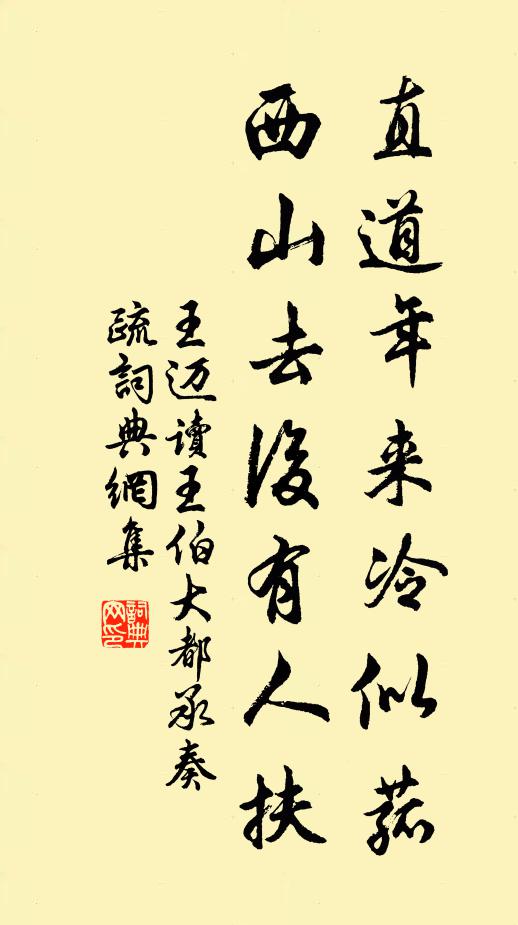 直道年来冷似菰
西山去後有人扶
王迈讀王伯大都承奏
疏詞典網集
詞典
网印